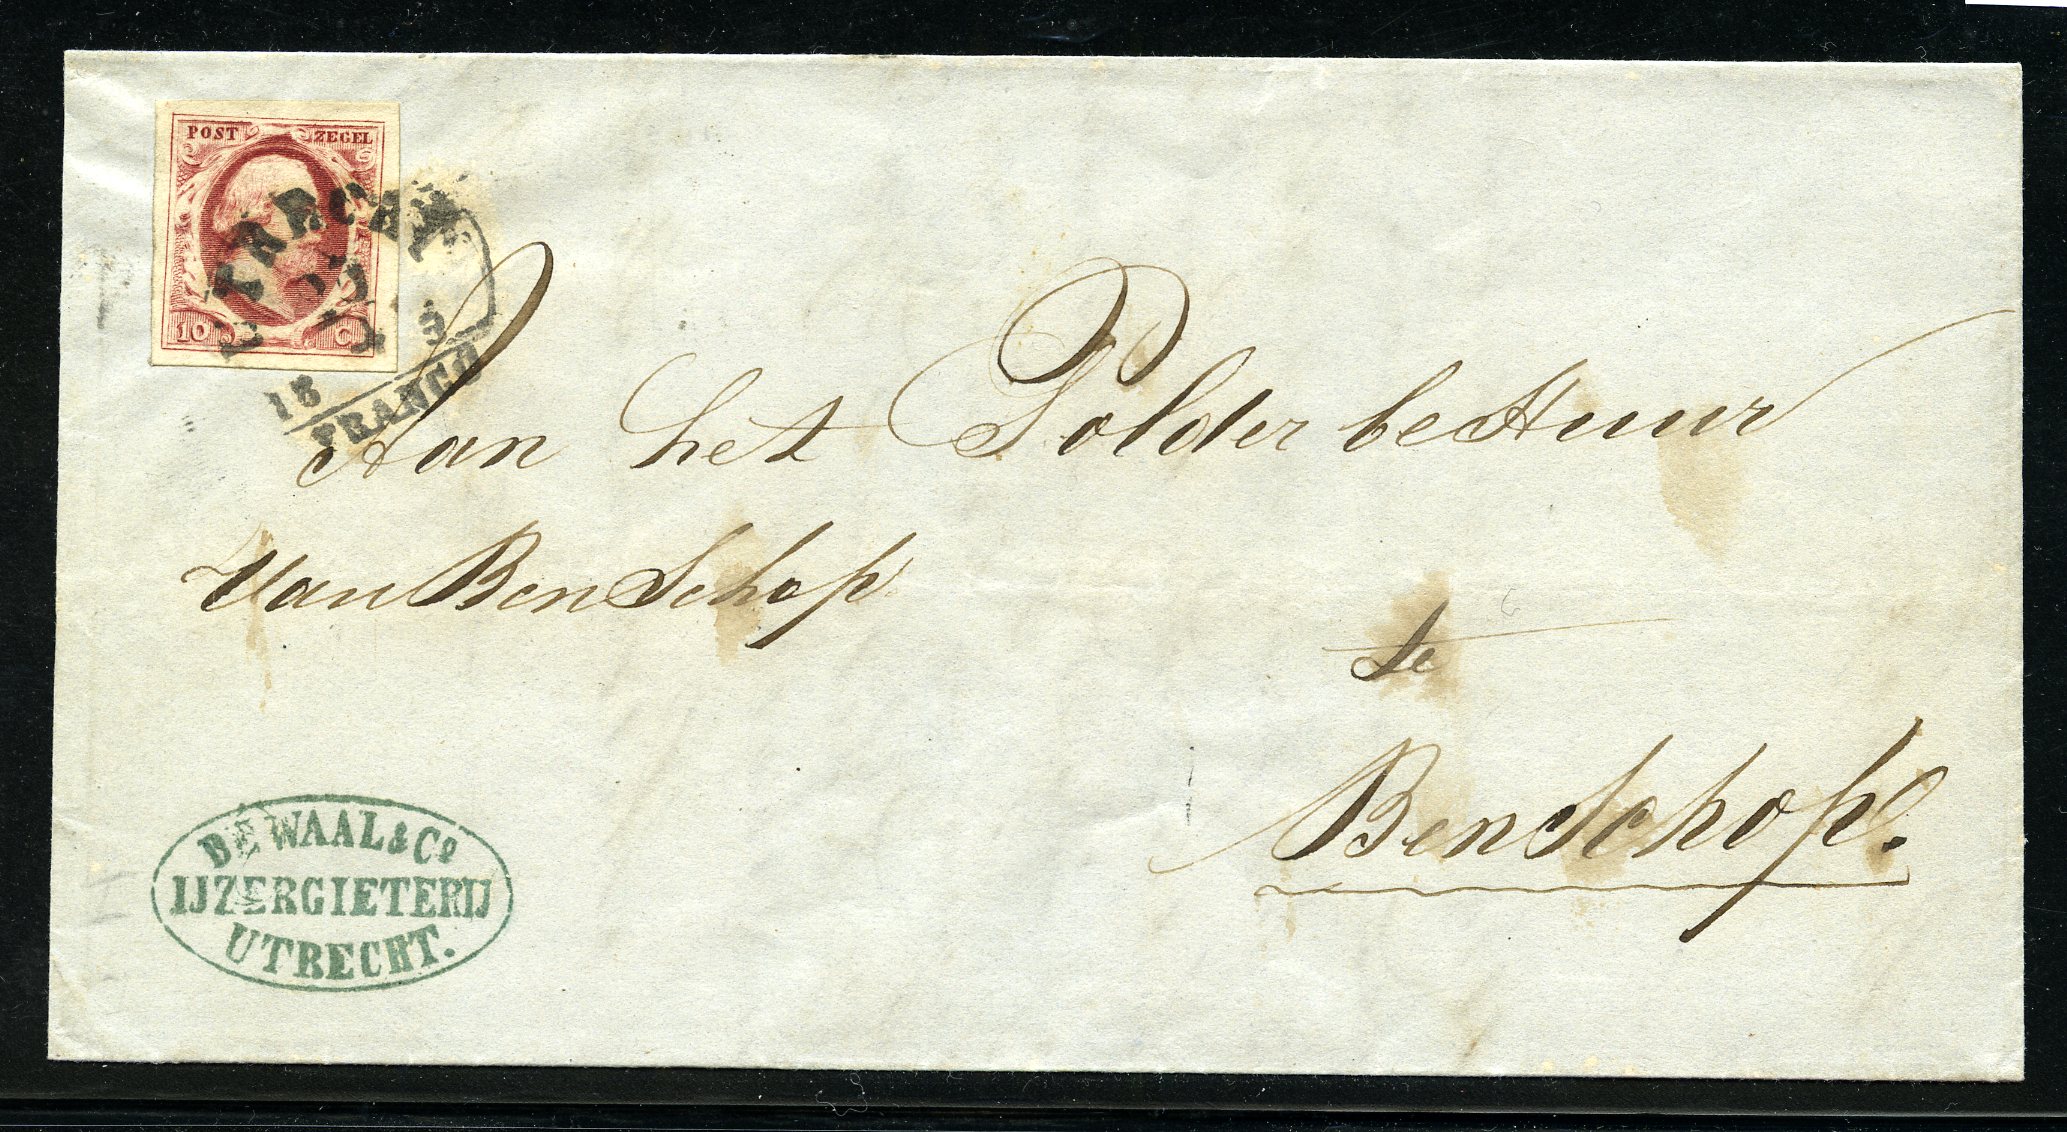 POST ZEGEL
10 C
UTRECHT
18 3
FRANCO
Aan het Polder bestuur
van Benschop
te
Benschop.
DE WAAL & Co
IJZERGIETERIJ
UTRECHT.